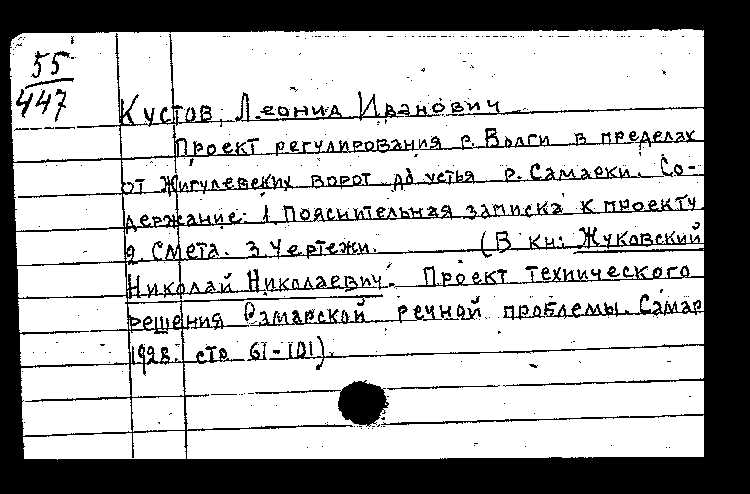 55
447
Кустов, Леонид Иванович
Проект регулирования р. Волги в пределах
от Жигулевских ворот до устья р. Самарки. Со-
держание: 1. Пояснительная записка к проекту.
2. Смета. 3. Чертежи. (В кн: Жуковский
Николай Николаевич. Проект технического
решения Самарской речной проблемы. Самар
1928. стр 61-101).